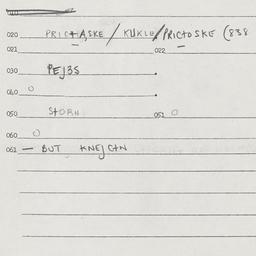 020 PRICTASKE / KUKLU / PRICTOSKE (838
021 022
030 PEJ3S
040 O
050 STORN 051 O
060 O
061 — BUT KNEJCTN